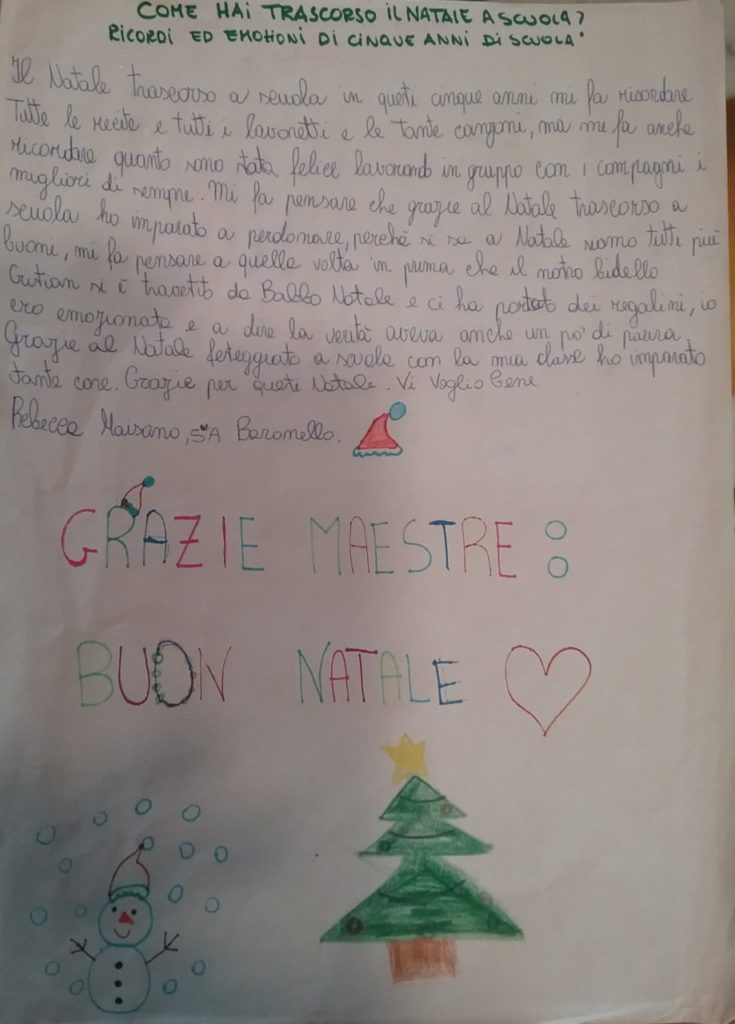 COME HAI TRASCORSO IL NATALE A SCUOLA?
RICORDI ED EMOTIONI DI CINQUE ANNI DI SCUOLA"
Il Natale trascorso a scuola in questi cinque anni mi fa ricordare
Tutte le recite e tutti i lavoretti e le tante canzoni, ma mi fa anche
ricordare quanto sono stata felice lavorando in gruppo con i compagni i
migliori di sempre. Mi fa pensare che grazie al Natale trascorso a
scuola ho imparato a perdonare, perché si sa a Natale siamo tutti più
buoni, mi fa pensare a quella volta in prima che il nostro bidello
Cristian si è travestito da Babbo Natale e ci ha portato dei regalini, io
ero emozionata e a dire la verità avevo anche un po' di paura.
Grazie al Natale festeggiato a scuola con la mia classe ho imparato
tante cose. Grazie per questi Natali. Vi Voglio Bene
Rebecca Maisano, 5ªA Baronello.
GRAZIE MAESTRE:
BUON NATALE